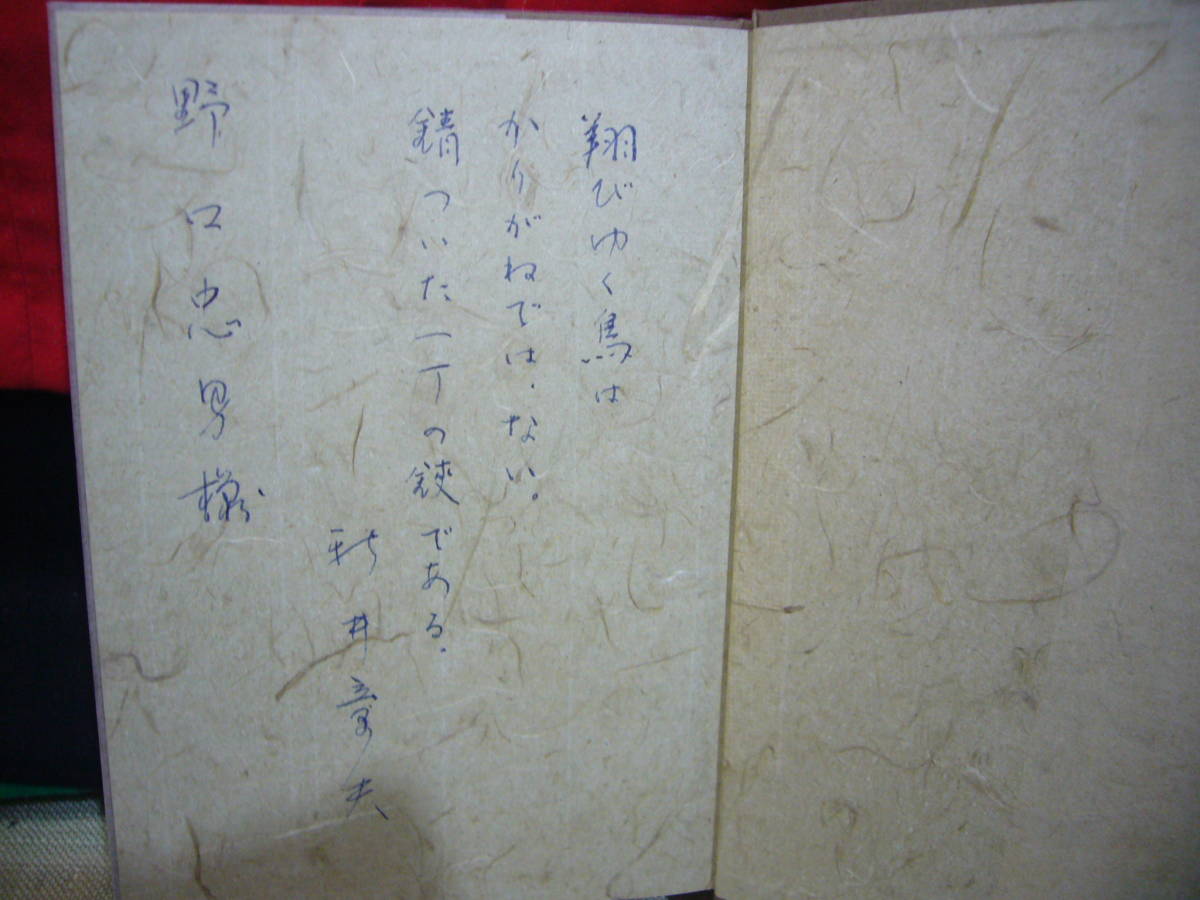 翔びゆく鳥は
かりがねでは、ない。
錆ついた一丁の鋏である。
新井章夫
野口忠男様